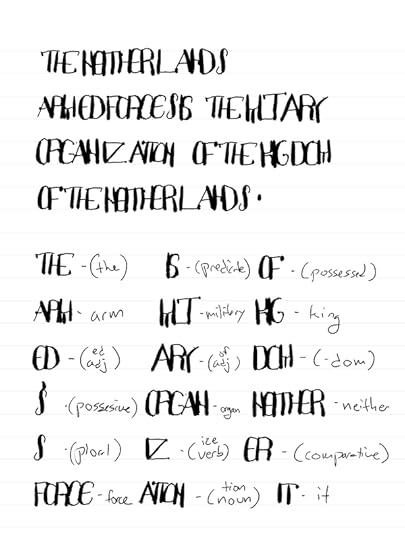 THE NEITHERLANDS
ARMEDFORCESIS THE MILITARY
ORGANIZATION OF THE KINGDOM
OF THE NEITHERLANDS.
THE - (the) IS - (predicate) OF - (possessed)
ARM - arm MILIT - military KING - king
ED - (ed adj) ARY - (of adj) DOM - (-dom)
S - (possesive) ORGAN - organ NEITHER - neither
S - (plural) IZ - (ize verb) ER - (comparative)
FORCE - force ATION - (tion noun) IT - it